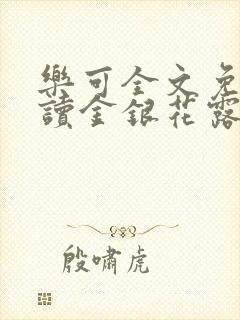 樂可全文免
讀金銀花露
殷嘯虎